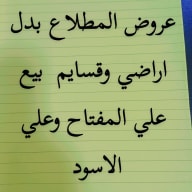 عروض المطلاع بدل
اراضي وقسايم بيع
علي المفتاح وعلي
الاسود